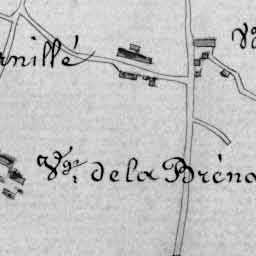 rnillé
Vge
Vge de la Bréna